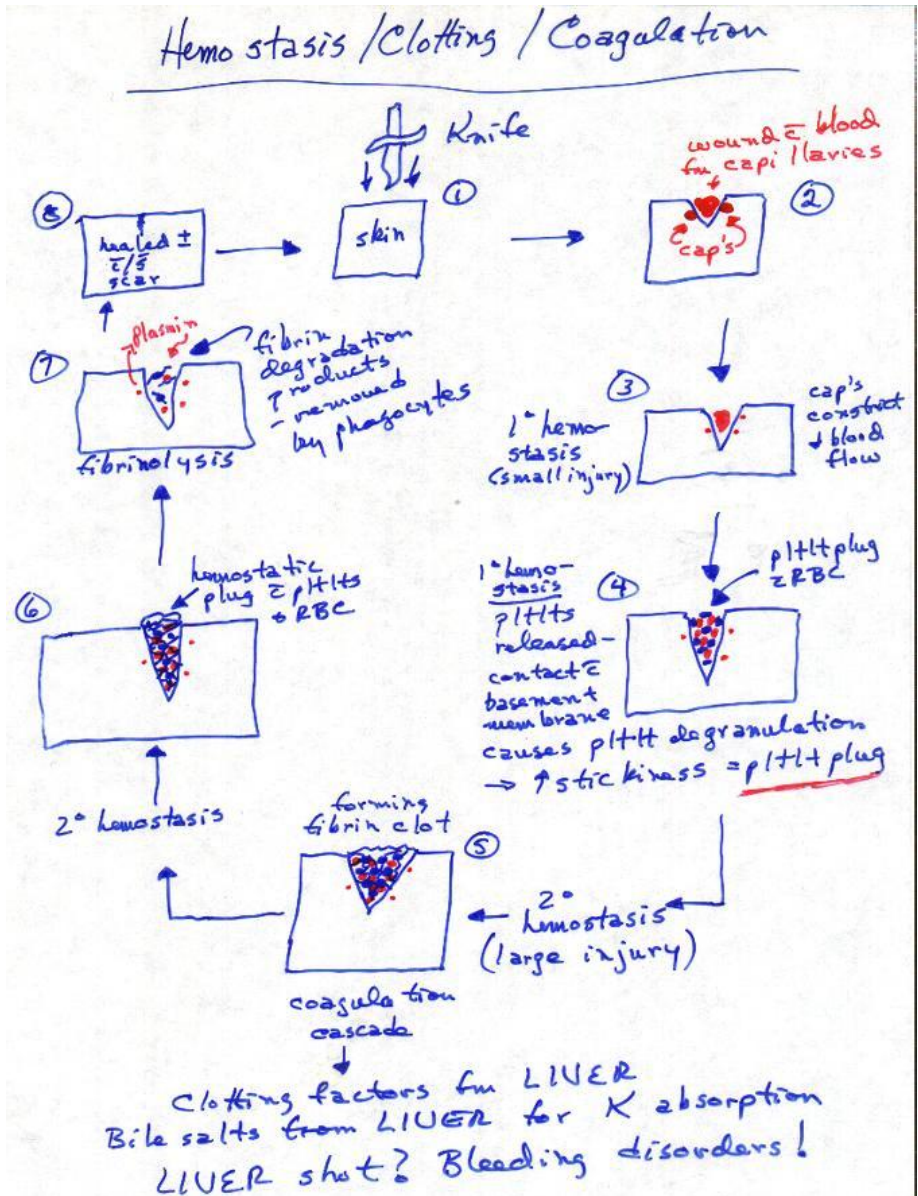 Hemostasis / Clotting / Coagulation
Knife
①
skin
wound c̄ blood
fm capillaries
②
cap's
③
1° hemo-
stasis
(small injury)
cap's
constrict
↓ blood
flow
1° hemo-
stasis
pltlts
released-
contact c̄
basement
membrane
causes pltlt degranulation
→ ↑ stickiness = pltlt plug
④
pltlt plug
c̄ RBC
2°
hemostasis
(large injury)
forming
fibrin clot
⑤
coagulation
cascade
Clotting factors fm LIVER
Bile salts from LIVER for K absorption
LIVER shot? Bleeding disorders!
2° hemostasis
⑥
hemostatic
plug c̄ pltlts
& RBC
⑦
plasmin
fibrin
degradation
products
- removed
by phagocytes
fibrinolysis
⑧
healed ±
c̄/s̄
scar